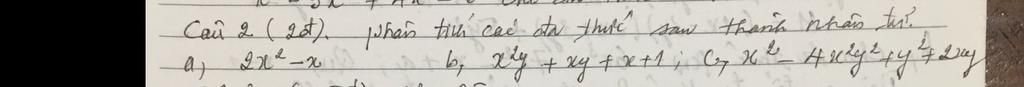 Câu 2 (2đ). Phân tích các đa thức sau thành nhân tử.
a, 2x² - x b, x²y + xy + x + 1 ; c, x² - 4x²y² + y² + 2xy